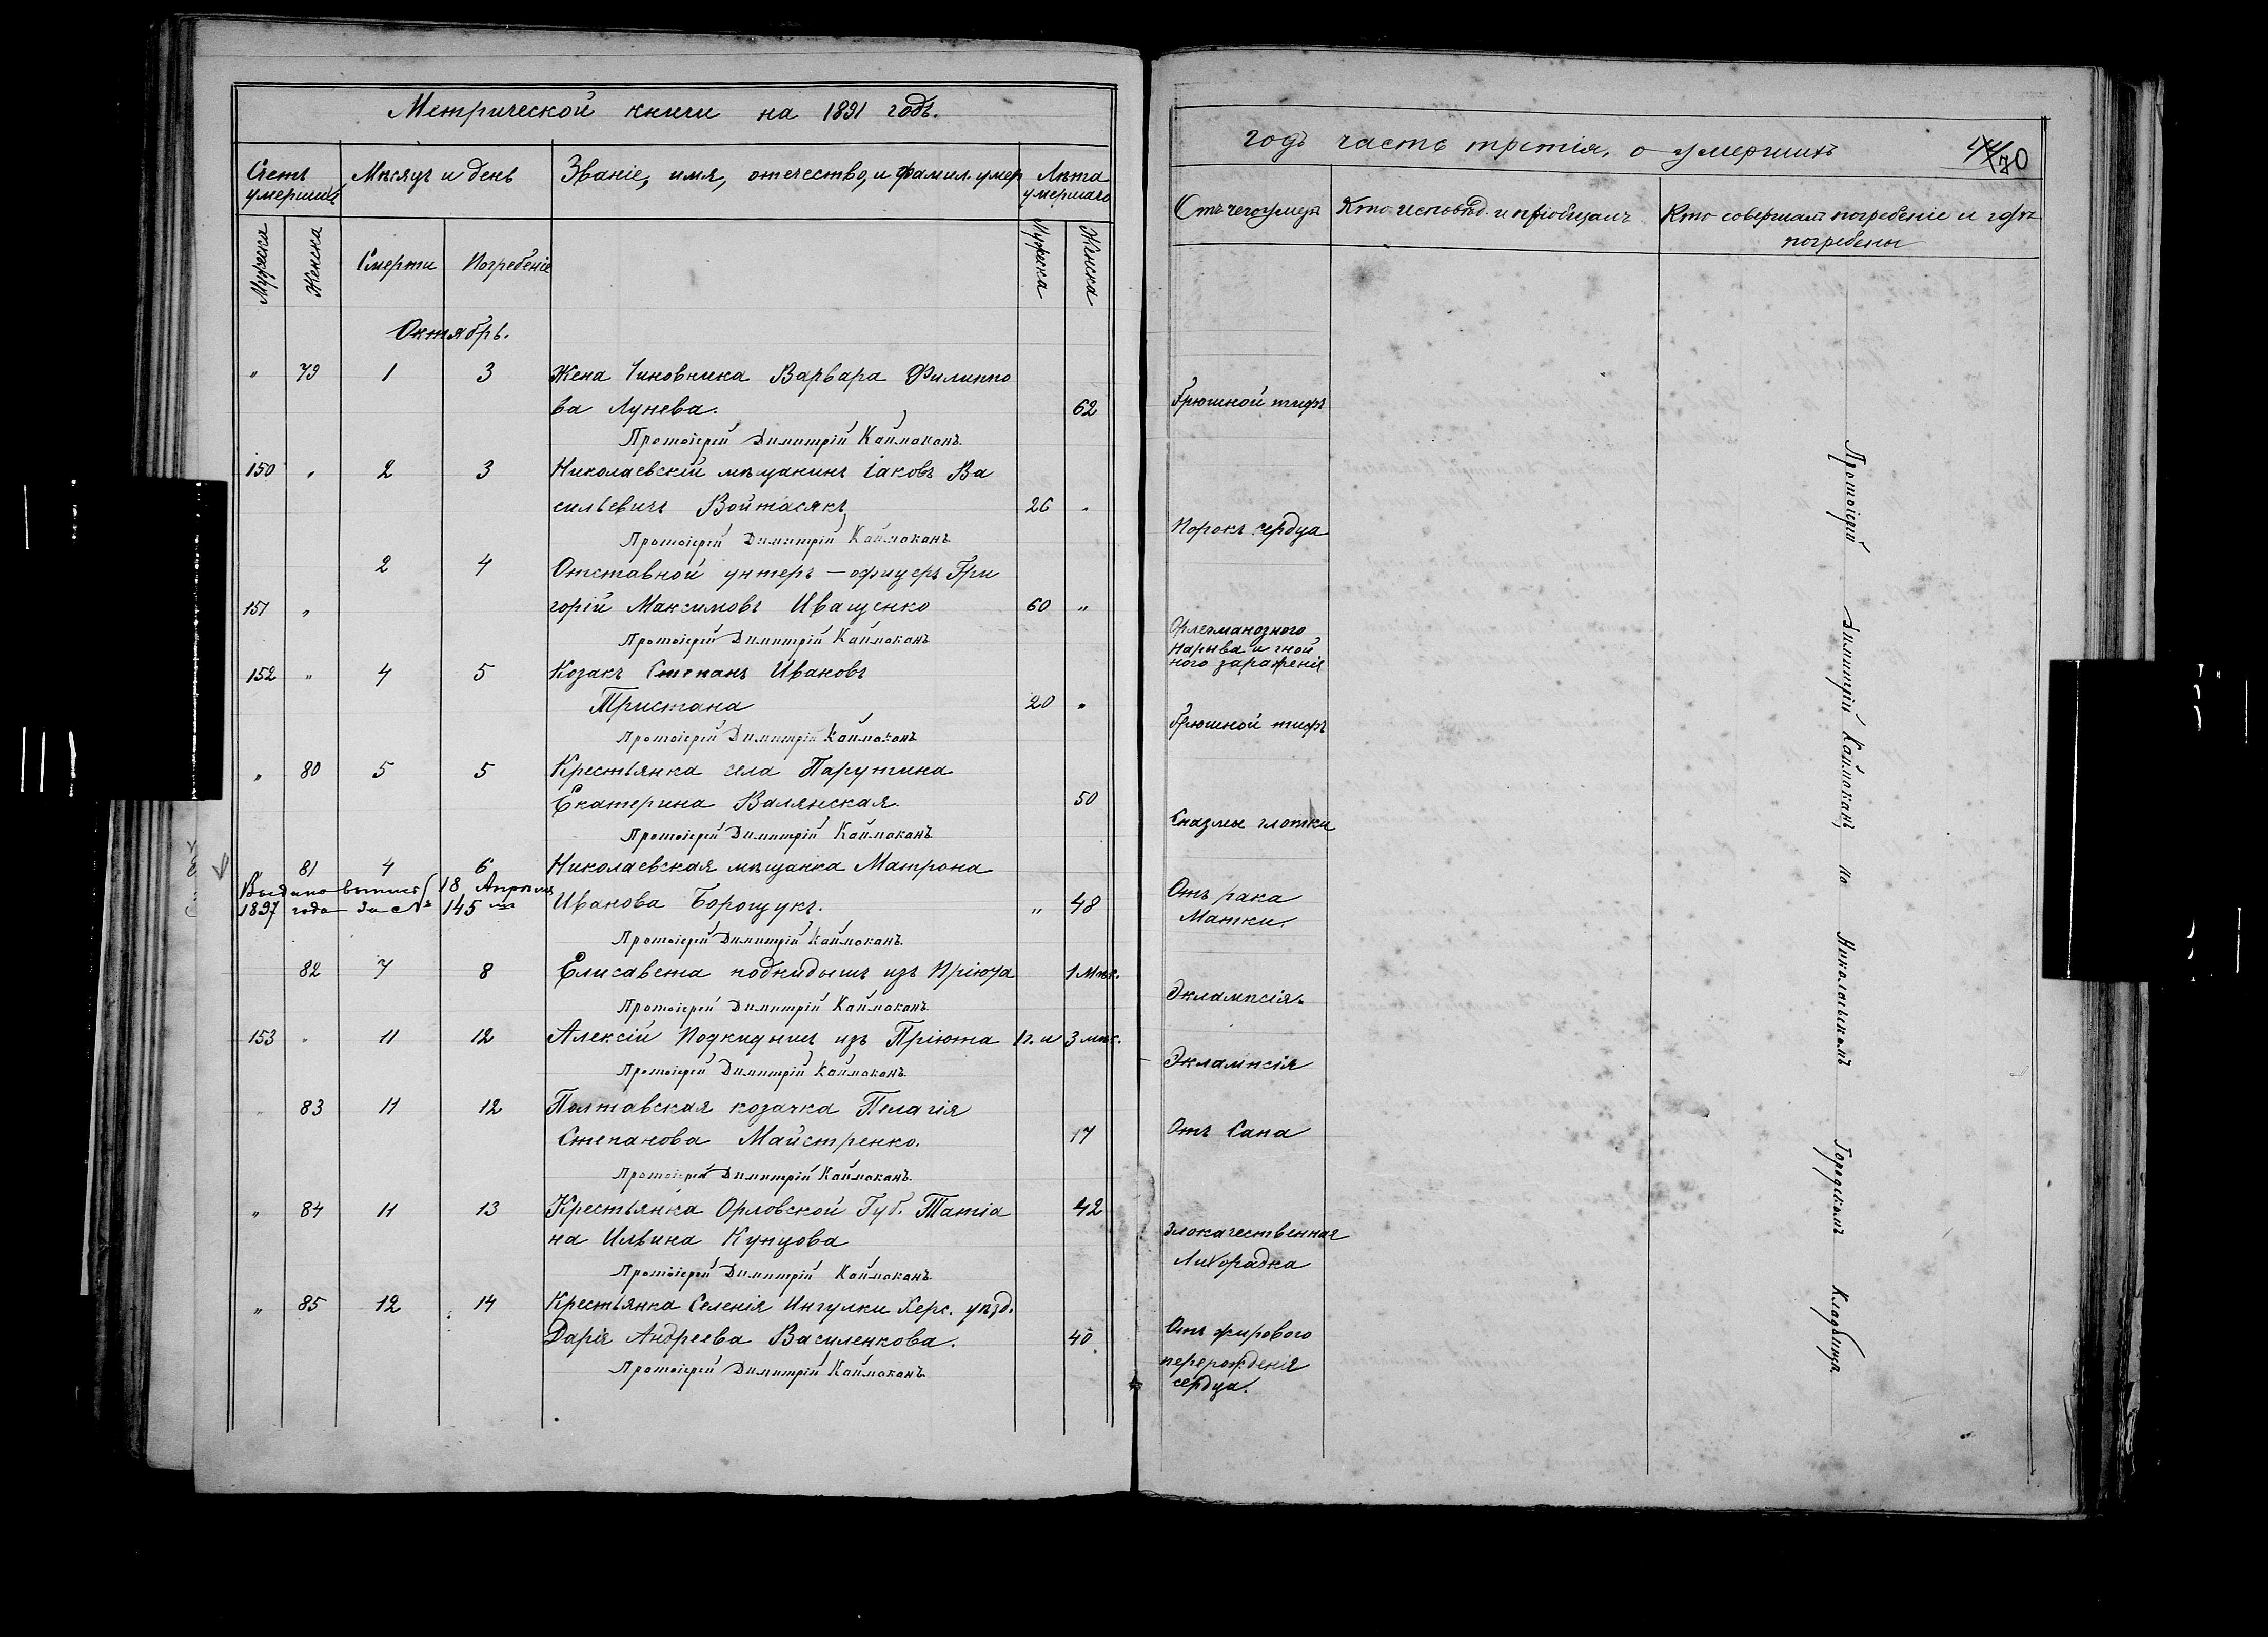 Метрической книги на 1891 годъ.
Счетъ умершихъ
Мѣсяцъ и день
Званіе, имя, отечество, и фамил. умер
Лѣта умершаго
Мужска
Женска
Смерти
Погребеніе
Мужска
Женска
Октябрь.
" 79 1 3 Жена Чиновника Варвара Филиппо
ва Лунева. 62
Протоіерей Димитрій Каймаканъ
150 " 2 3 Николаевскій мѣщанинъ Іаковъ Ва
сильевичъ Войтасякъ 26 "
Протоіерей Димитрій Каймаканъ
2 4 Отставной унтеръ-офицеръ Гри
151 " горій Максимовъ Иващенко 60 "
Протоіерей Димитрій Каймаканъ
152 " 4 5 Козакъ Степанъ Ивановъ
Тристана 20 "
Протоіерей Димитрій Каймаканъ
" 80 5 5 Крестьянка села Парутина
Екатерина Валянская. 50
Протоіерей Димитрій Каймаканъ
81 4 6 Николаевская мѣщанка Матрона
Выдано выпись 18 Апрѣля
1897 года за № 145 Иванова Борощукъ. " 48
Протоіерей Димитрій Каймаканъ
82 7 8 Елисавета подкидышъ изъ Пріюта 1 мѣс.
Протоіерей Димитрій Каймаканъ
153 " 11 12 Алексій Подкидышъ изъ Пріюта 1 г. и 3 мѣс.
Протоіерей Димитрій Каймаканъ
83 11 12 Полтавская козачка Пелагія
Степанова Майстренко. 17
Протоіерей Димитрій Каймаканъ
" 84 11 13 Крестьянка Орловской Губ. Татіа 42
на Ильина Купцова
Протоіерей Димитрій Каймаканъ
" 85 12 14 Крестьянка Селенія Ингулки Херс. уѣзд.
Дарія Андреева Василенкова. 40
Протоіерей Димитрій Каймаканъ
годъ часть третія, о умершихъ
70
Отъ чего умеръ
Кто исповѣд. и пріобщалъ
Кто совершалъ погребеніе и гдѣ
погребены
Брюшной тифъ
Порокъ сердца
Нарыва и гной
ного зараженія
Брюшной тифъ
Спазмы глотки
Отъ рака
Матки.
Эклампсія.
Эклампсія
Отъ Сапа
Злокачественная
Лихорадка
Отъ жирового
перерожденія
сердца.
Протоіерей Димитрій Каймаканъ на Николаевскомъ Городскомъ Кладбища